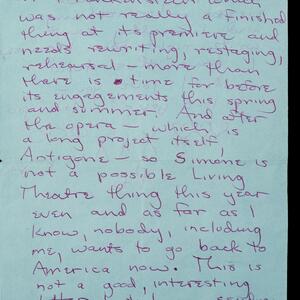 which
was not really a finished
thing at its premiere and
needs rewriting, restaging,
rehearsal — more than
there is time for before
its engagements this spring
and summer. And after
the opera — which is
a long project itself,
Antigone — so Simone is
not a possible Living
Theatre thing this year
even and as far as I
know, nobody, including
me, wants to go back to
America now. This is
not a good, interesting